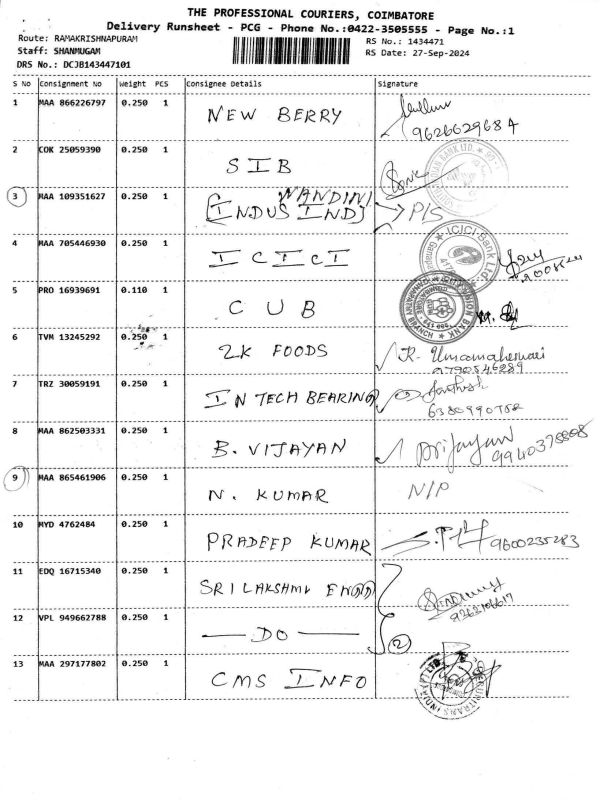 THE PROFESSIONAL COURIERS, COIMBATORE
Delivery Runsheet - PCG - Phone No.:0422-3505555 - Page No.:1
Route: RAMAKRISHNAPURAM
RS No.: 1434471
Staff: SHANMUGAM
RS Date: 27-Sep-2024
DRS No.: DCJB143447101
S No Consignment No Weight PCS Consignee Details Signature
1 MAA 866226797 0.250 1 NEW BERRY
2 COK 25059390 0.250 1 SIB
3 MAA 109351627 0.250 1 INDUS INDI NANDINI
4 MAA 705446930 0.250 1 ICICI
5 PRO 16939691 0.110 1 CUB
6 TVM 13245292 0.250 1 2K FOODS R. Umamaheswari
7 TRZ 30059191 0.250 1 IN TECH BEARING
6380990752
8 MAA 862503331 0.250 1 B. VIJAYAN
9 MAA 865461906 0.250 1 N. KUMAR N/P
10 MYD 4762484 0.250 1 PRADEEP KUMAR 9600235283
11 EDQ 16715340 0.250 1 SRI LAKSHMI ENGG
12 VPL 949662788 0.250 1 — DO — 2
13 MAA 297177802 0.250 1 CMS INFO